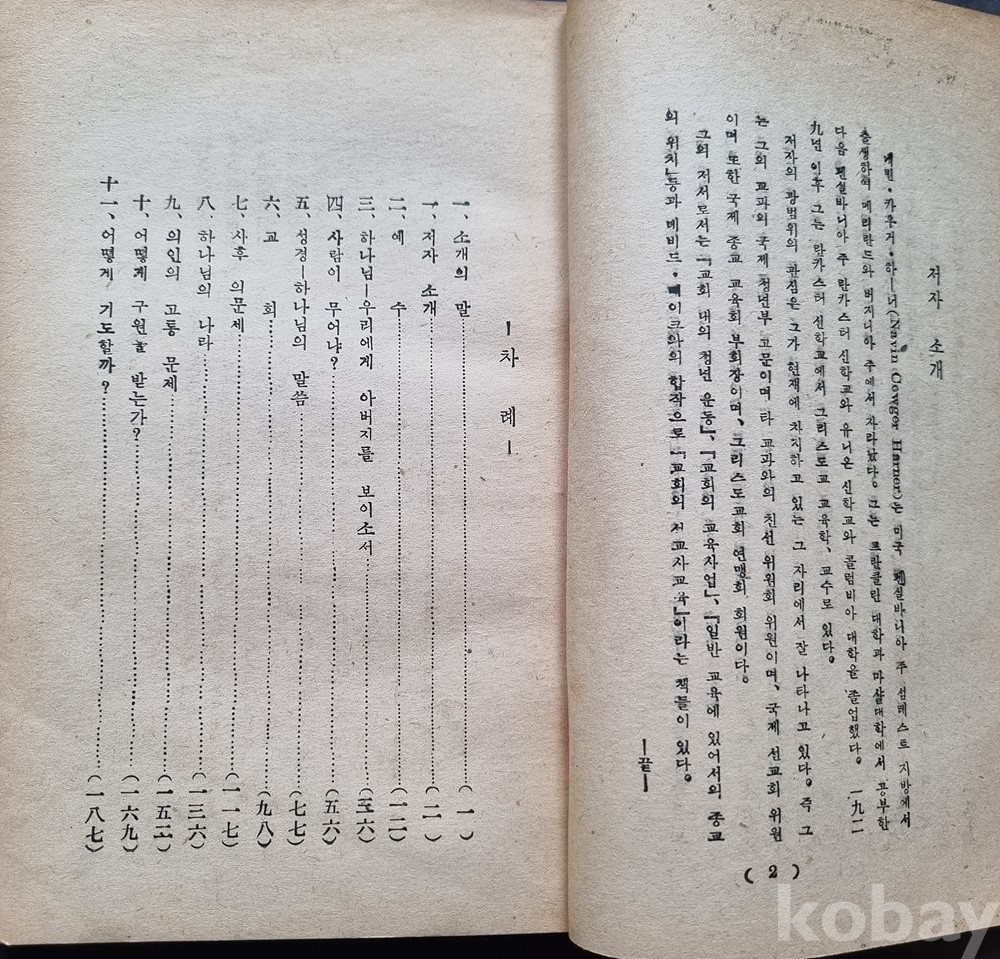 저자 소개
네빈·카우거·하ー너(Navin Cowger Harner)는 미국 펜실바니아 주 섬메스트 지방에서
출생하여 메리란드와 버지니아 주에서 자라났다。 그는 프란클린 대학과 마샬대학에서 공부한
다음 펜실바니아 주 란카스터 신학교와 유니온 신학교와 콜럼비아 대학을 졸업했다。 一九二
九년 이후 그는 란카스터 신학교에서 그리스도교 교육학、교수로 있다。
저자의 광범위의 관심은 그가 현재에 차지하고 있는 그 자리에서 잘 나타나고 있다。 즉 그
는 그의 교파의 국제 청년부 고문이며 타 교파와의 친선 위원회 위원이며、국제 선교회 위원
이며 또한 국제 종교 교육회 부회장이며、그리스도교회 연맹회 회원이다。
그의 저서로서는「교회 내의 청년 운동」、「교회의 교육사업」、「일반 교육에 있어서의 종교
의 위치」등과 데비드·베이크와의 합작으로「교회의 선교사교육」이라는 책들이 있다。
ー끝ー
( 2 )
ー차 례ー
一、소개의 말……(一)
一、저자 소개……(二)
二、예 수……(一二)
三、하나님ー우리에게 아버지를 보이소서……(三六)
四、사람이 무어냐?……(五六)
五、성경ー하나님의 말씀……(七七)
六、교 회……(九八)
七、사후 의문제……(一一七)
八、하나님의 나라……(一三六)
九、의인의 고통 문제……(一五二)
十、어떻게 구원을 받는가?……(一六九)
十一、어떻게 기도할까?……(一八七)
kobay